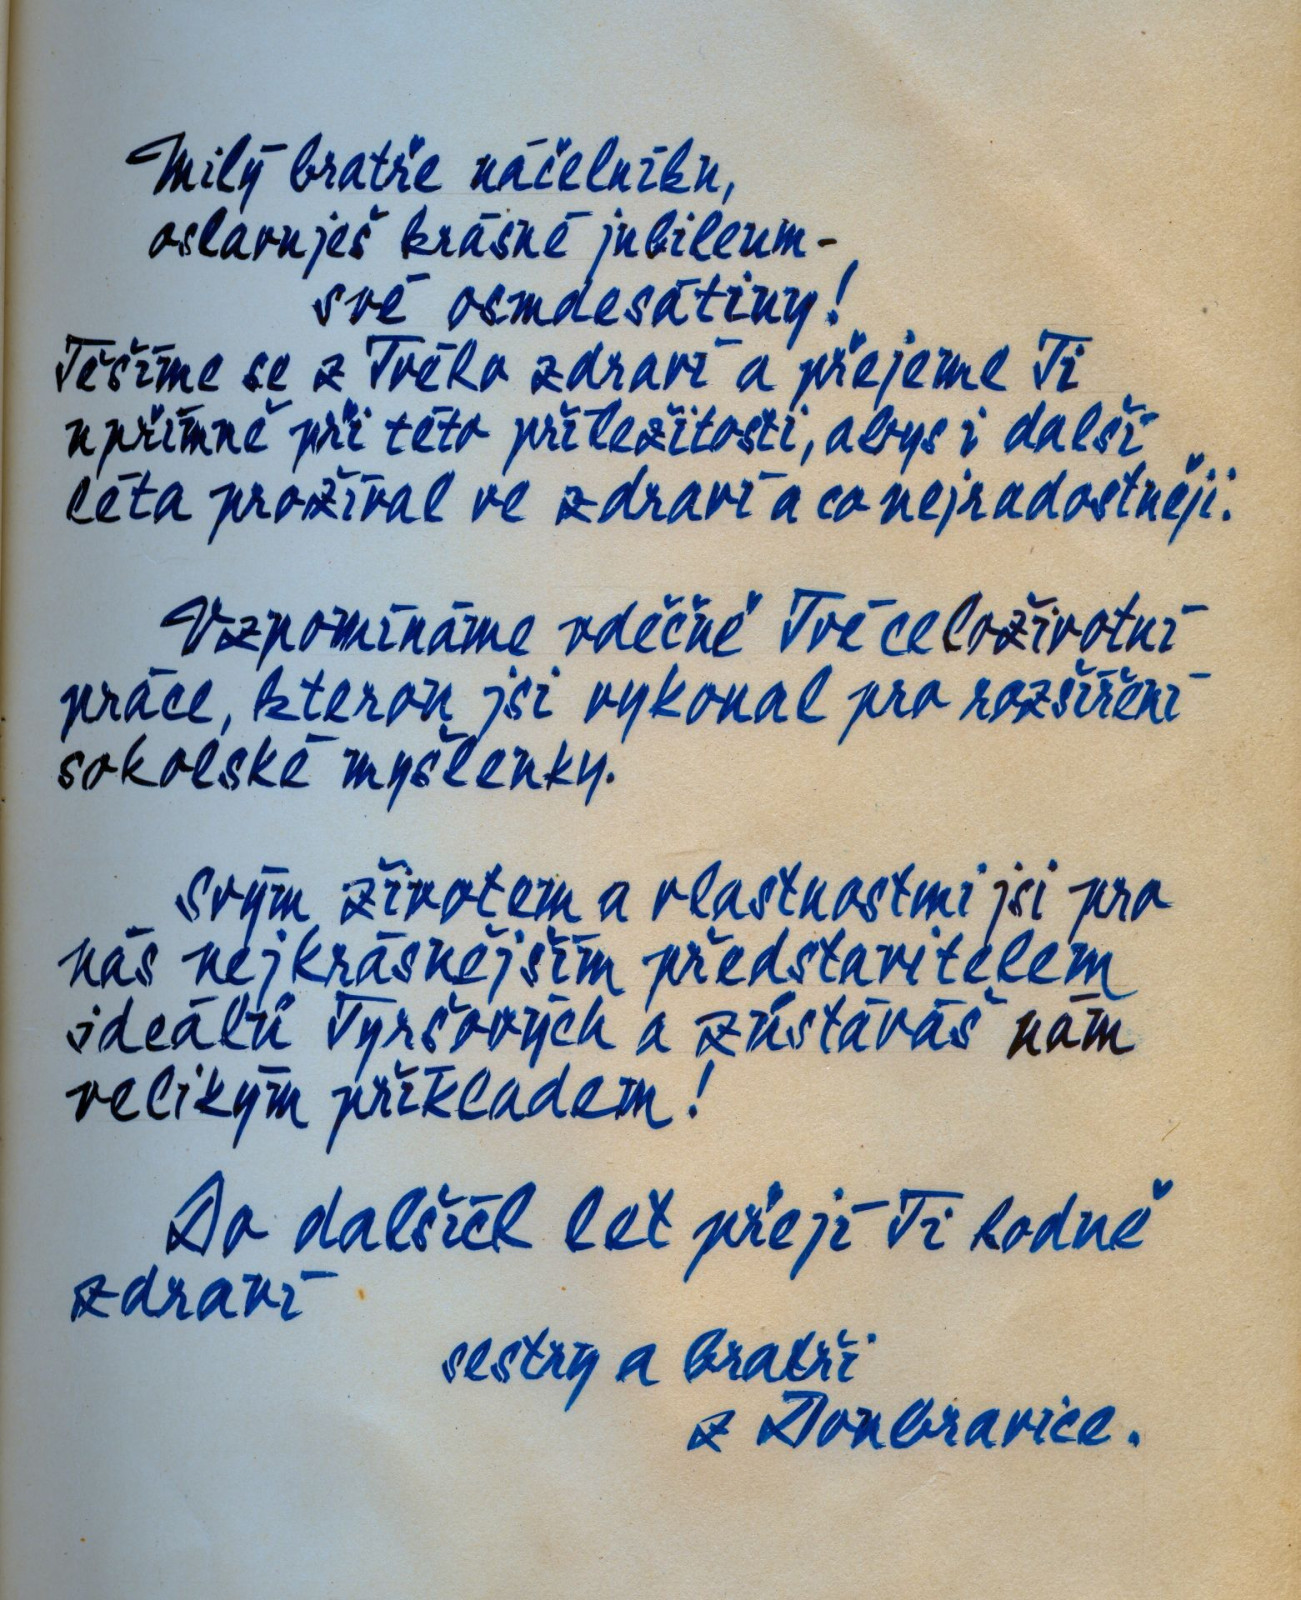 Milý bratře náčelníku,
oslavuješ krásné jubileum -
své osmdesátiny!
Těšíme se z Tvého zdraví a přejeme Ti
upřímně při této příležitosti, abys i další
léta prožíval ve zdraví a co nejradostněji.
Vzpomínáme vděčně Tvé celoživotní
práce, kterou jsi vykonal pro rozšíření
sokolské myšlenky.
Svým životem a vlastnostmi jsi pro
nás nejkrásnějším představitelem
ideálů Tyršových a zůstáváš nám
velikým příkladem!
Do dalších let přejí Ti hodně
zdraví
sestry a bratři
z Doubravice.